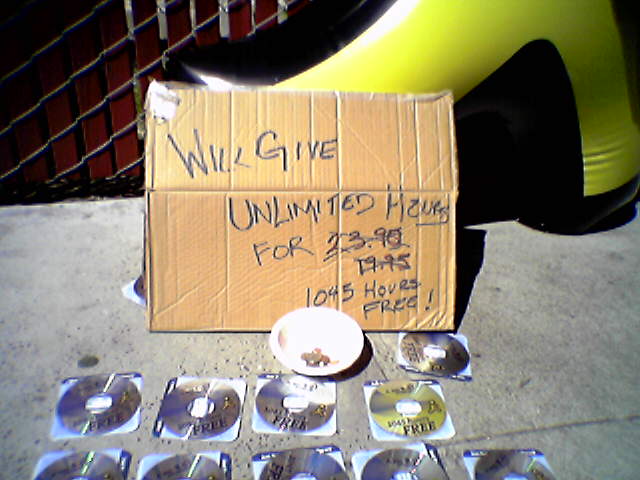 WILL GIVE
UNLIMITED HOURS
FOR 23.90
19.95
1045 HOURS
FREE!
FREE
FREE
FREE
1045 hours
FREE